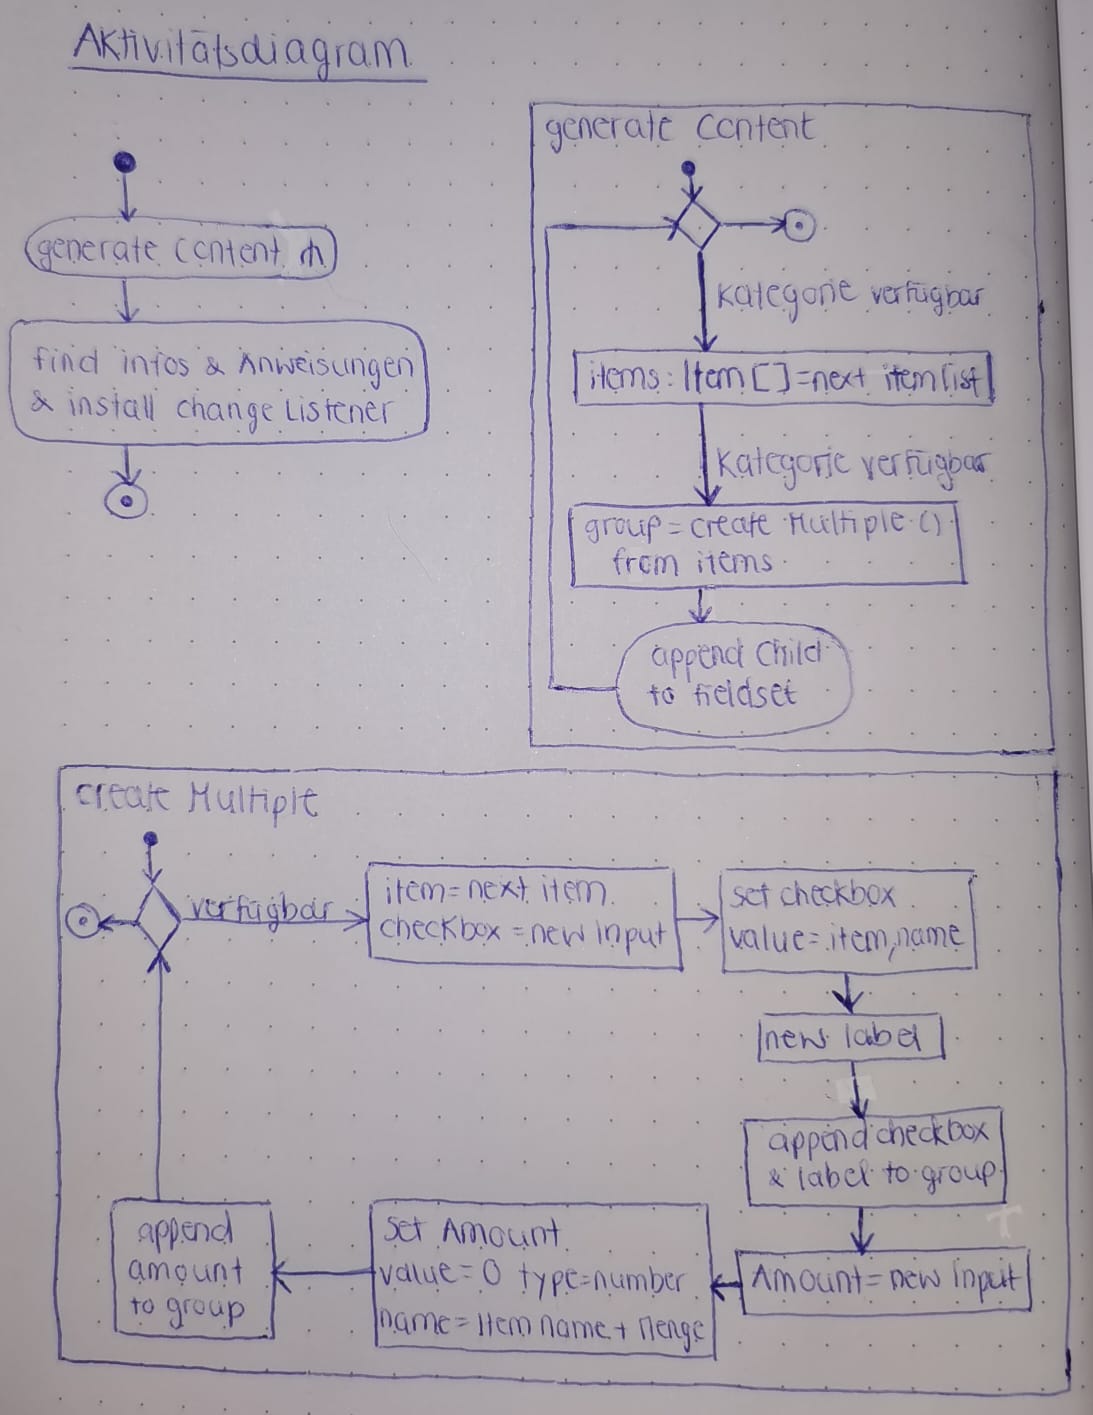 Aktivitätsdiagram
generate Content
generate Content
find infos & Anweisungen
& install change Listener
Kategorie verfügbar
items: Item[]=next item list
Kategorie verfügbar
group = create Multiple ()
from items
append Child
to fieldset
create Multiple
verfügbar
item=next item
checkbox = new input
set checkbox
value= item,name
new label
append checkbox
& label to group
Amount= new input
set Amount
value=0 type=number
name= Item name + Menge
append
amount
to group